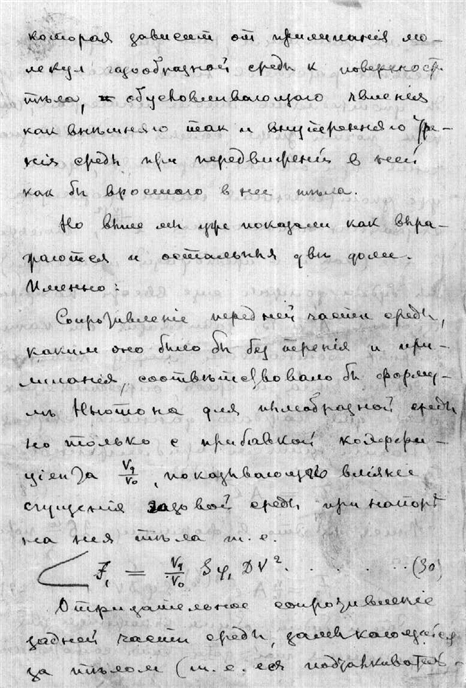 которая зависит от прилипанія мо-
лекул газообразной среды к поверхност
тѣла, обусловливающаго явленія
как внѣшняго так и внутренняго тре-
нія среды при передвиженіи в ней
как бы вросшаго в нее тѣла.
Но выше мы уже показали как выра-
жаются и остальныя двѣ доли.
Именно:
Сопротивленіе передней части среды,
каким оно было бы без тренія и при-
липанія, соотвѣтствовало бы форму-
лѣ Ньютона для пылеобразной среды
но только с прибавкой коэффи-
ціента V₁/V₀, показывающаго вліяніе
сгущенія газовой среды при напорѣ
на нея тѣла т. е.
F₁ = V₁/V₀ S φ₁ D V² . . . . . . (30)
Отрицательное сопротивленіе
задней части среды,
за тѣлом (т. е. ея